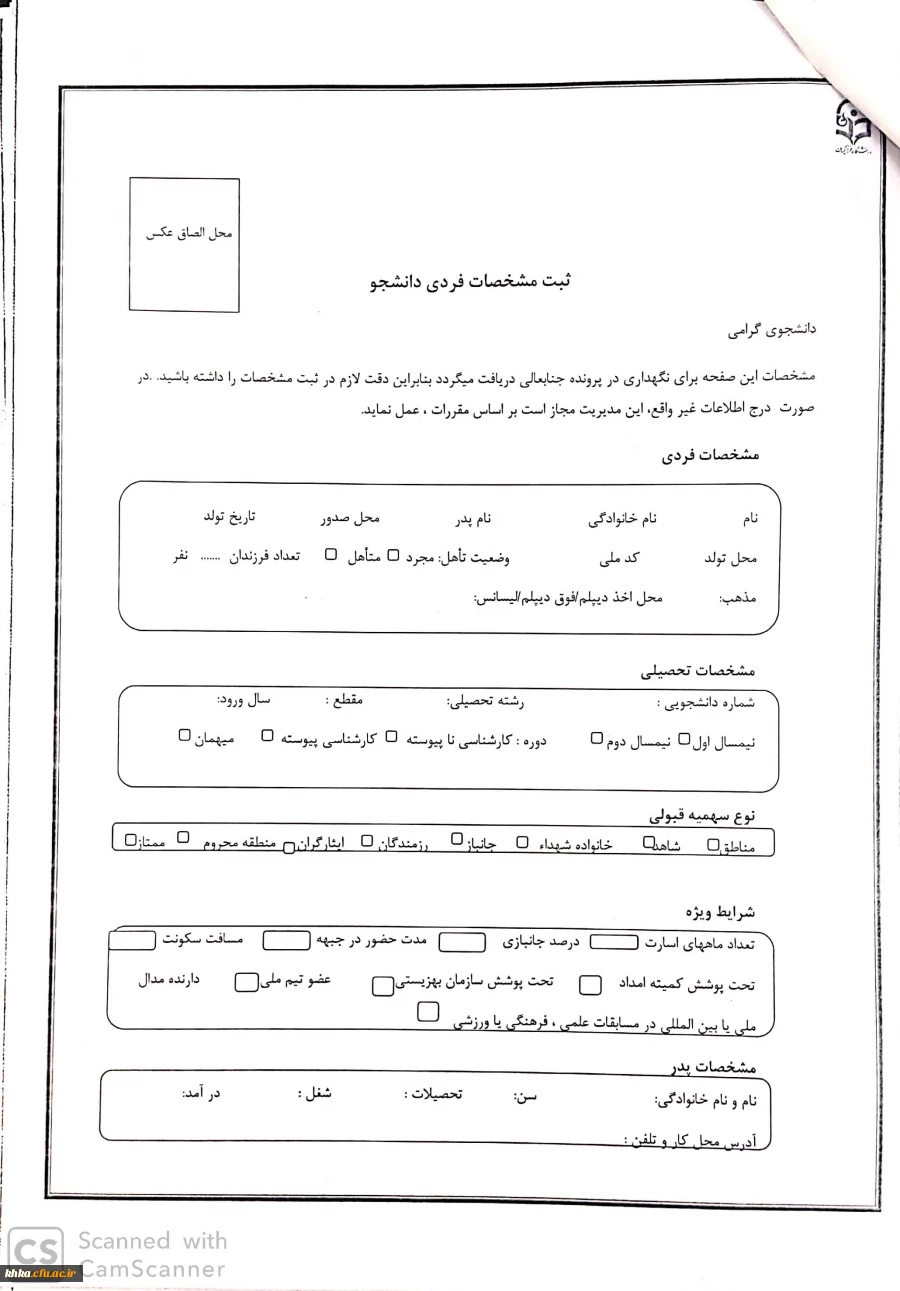 دانشگاه فرهنگیان
محل الصاق عکس
ثبت مشخصات فردی دانشجو
دانشجوی گرامی
مشخصات این صفحه برای نگهداری در پرونده جنابعالی دریافت میگردد بنابراین دقت لازم در ثبت مشخصات را داشته باشید. .در
صورت درج اطلاعات غیر واقع، این مدیریت مجاز است بر اساس مقررات ، عمل نماید.
مشخصات فردی
نام نام خانوادگی نام پدر محل صدور تاریخ تولد
محل تولد کد ملی وضعیت تأهل: مجرد متأهل تعداد فرزندان ...... نفر
مذهب: محل اخذ دیپلم/فوق دیپلم/لیسانس:
مشخصات تحصیلی
شماره دانشجویی : رشته تحصیلی: مقطع : سال ورود:
نیمسال اول نیمسال دوم دوره : کارشناسی نا پیوسته کارشناسی پیوسته میهمان
نوع سهمیه قبولی
مناطق شاهد خانواده شهداء جانباز رزمندگان ایثارگران منطقه محروم ممتاز
شرایط ویژه
تعداد ماههای اسارت درصد جانبازی مدت حضور در جبهه مسافت سکونت
تحت پوشش کمیته امداد تحت پوشش سازمان بهزیستی عضو تیم ملی دارنده مدال
ملی یا بین المللی در مسابقات علمی ، فرهنگی یا ورزشی
مشخصات پدر
نام و نام خانوادگی: سن: تحصیلات : شغل : در آمد:
آدرس محل کار و تلفن :
CS Scanned with
CamScanner
khka.cfu.ac.ir